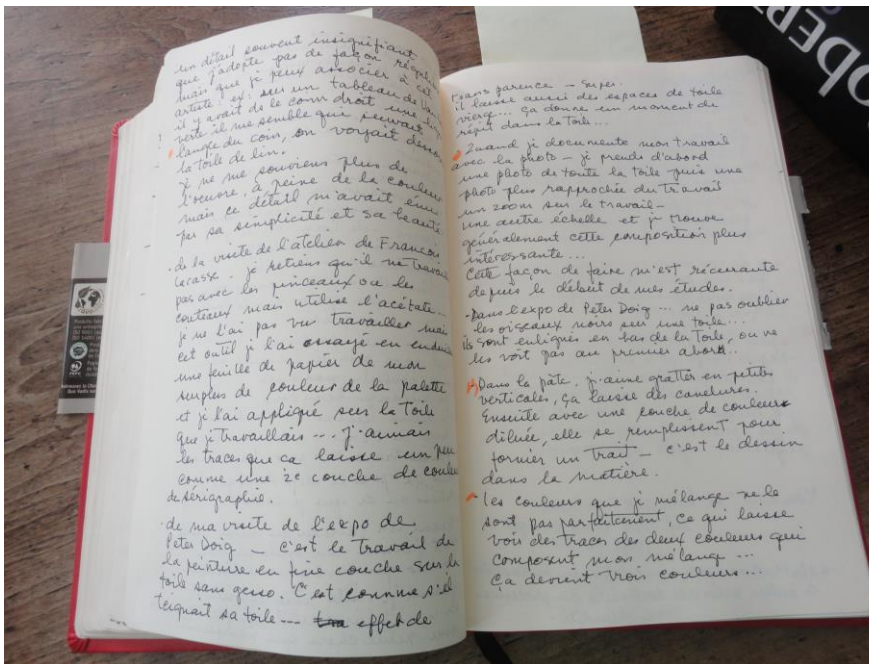 un détail souvent insignifiant
que j'adopte pas de façon
mais que je peux associer à cet
artiste. ex: sur un tableau de
il y avait ds le coin droit une
verte il me semble que suivait
l'angle du coin, on voyait
la toile de lin.
je ne me souviens plus de
l'oeuvre, à peine de la couleur
mais ce détail m'avait ému
par sa simplicité et sa beauté.
- de la visite de l'atelier de François
Lacasse. je retiens qu'il ne
pas avec les pinceaux ou les
couteaux mais utilise l'acétate...
je ne l'ai pas vu travailler mais
cet outil je l'ai essayé en
une feuille de papier de mon
surplus de couleur de la palette
et je l'ai appliqué sur la toile
que je travaillais ... j'aimais
les traces que ca laisse un peu
comme une 2e couche de
de sérigraphie.
- de ma visite de l'expo de
Peter Doig — c'est le travail de
la peinture en fine couche sur la
toile sans gesso. C'est comme s'il
teignait sa toile --- effet de
transparence - super.
il laisse aussi des espaces de toile
vierge... ça donne un moment de
répit dans la toile...
Quand je documente mon travail
avec la photo - je prends d'abord
une photo de toute la toile puis une
photo plus rapprochée du travail
un zoom sur le travail -
une autre échelle et je trouve
généralement cette composition plus
intéressante...
Cette façon de faire m'est récurrante
depuis le début de mes études.
- Dans l'expo de Peter Doig ... ne pas oublier
les oiseaux noirs sur une toile...
ils sont enlignés en bas de la toile, on ne
les voit pas au premier abord..
Dans la pâte. j'aime gratter en petites
verticales, ça laisse des canelures.
Ensuite avec une couche de couleurs
diluée, elle se remplissent pour
former un trait - c'est le dessin
dans la matière.
les couleurs que je mélange ne le
sont pas parfaitement, ce qui laisse
voir des traces des deux couleurs qui
composent mon mélange ...
ça devient trois couleurs...
OBER